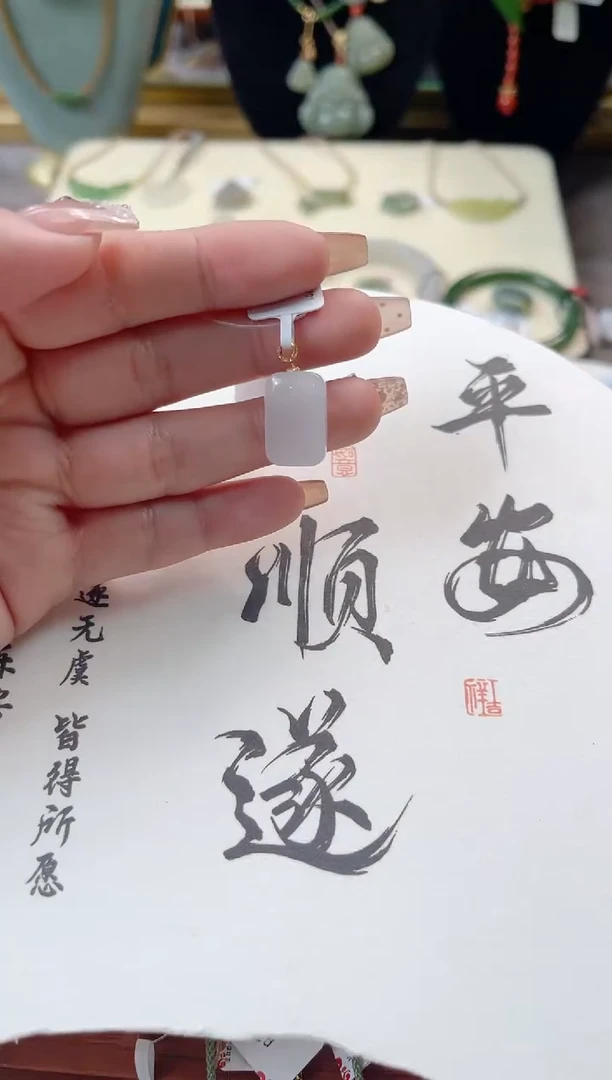 平安
顺遂
遂无虞
皆得所愿